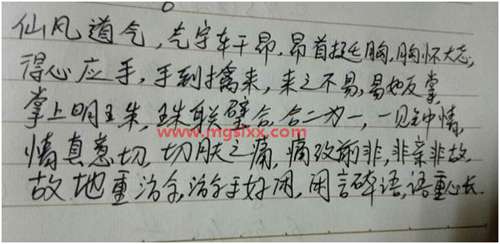 仙风道气，气宇轩昂，昂首挺胸，胸怀大志，
得心应手，手到擒来，来之不易，易如反掌，
掌上明珠，珠联璧合，合二为一，一见钟情，
www.mgsixx.com
情真意切，切肤之痛，痛改前非，非亲非故，
故地重游，游手好闲，闲言碎语，语重心长．